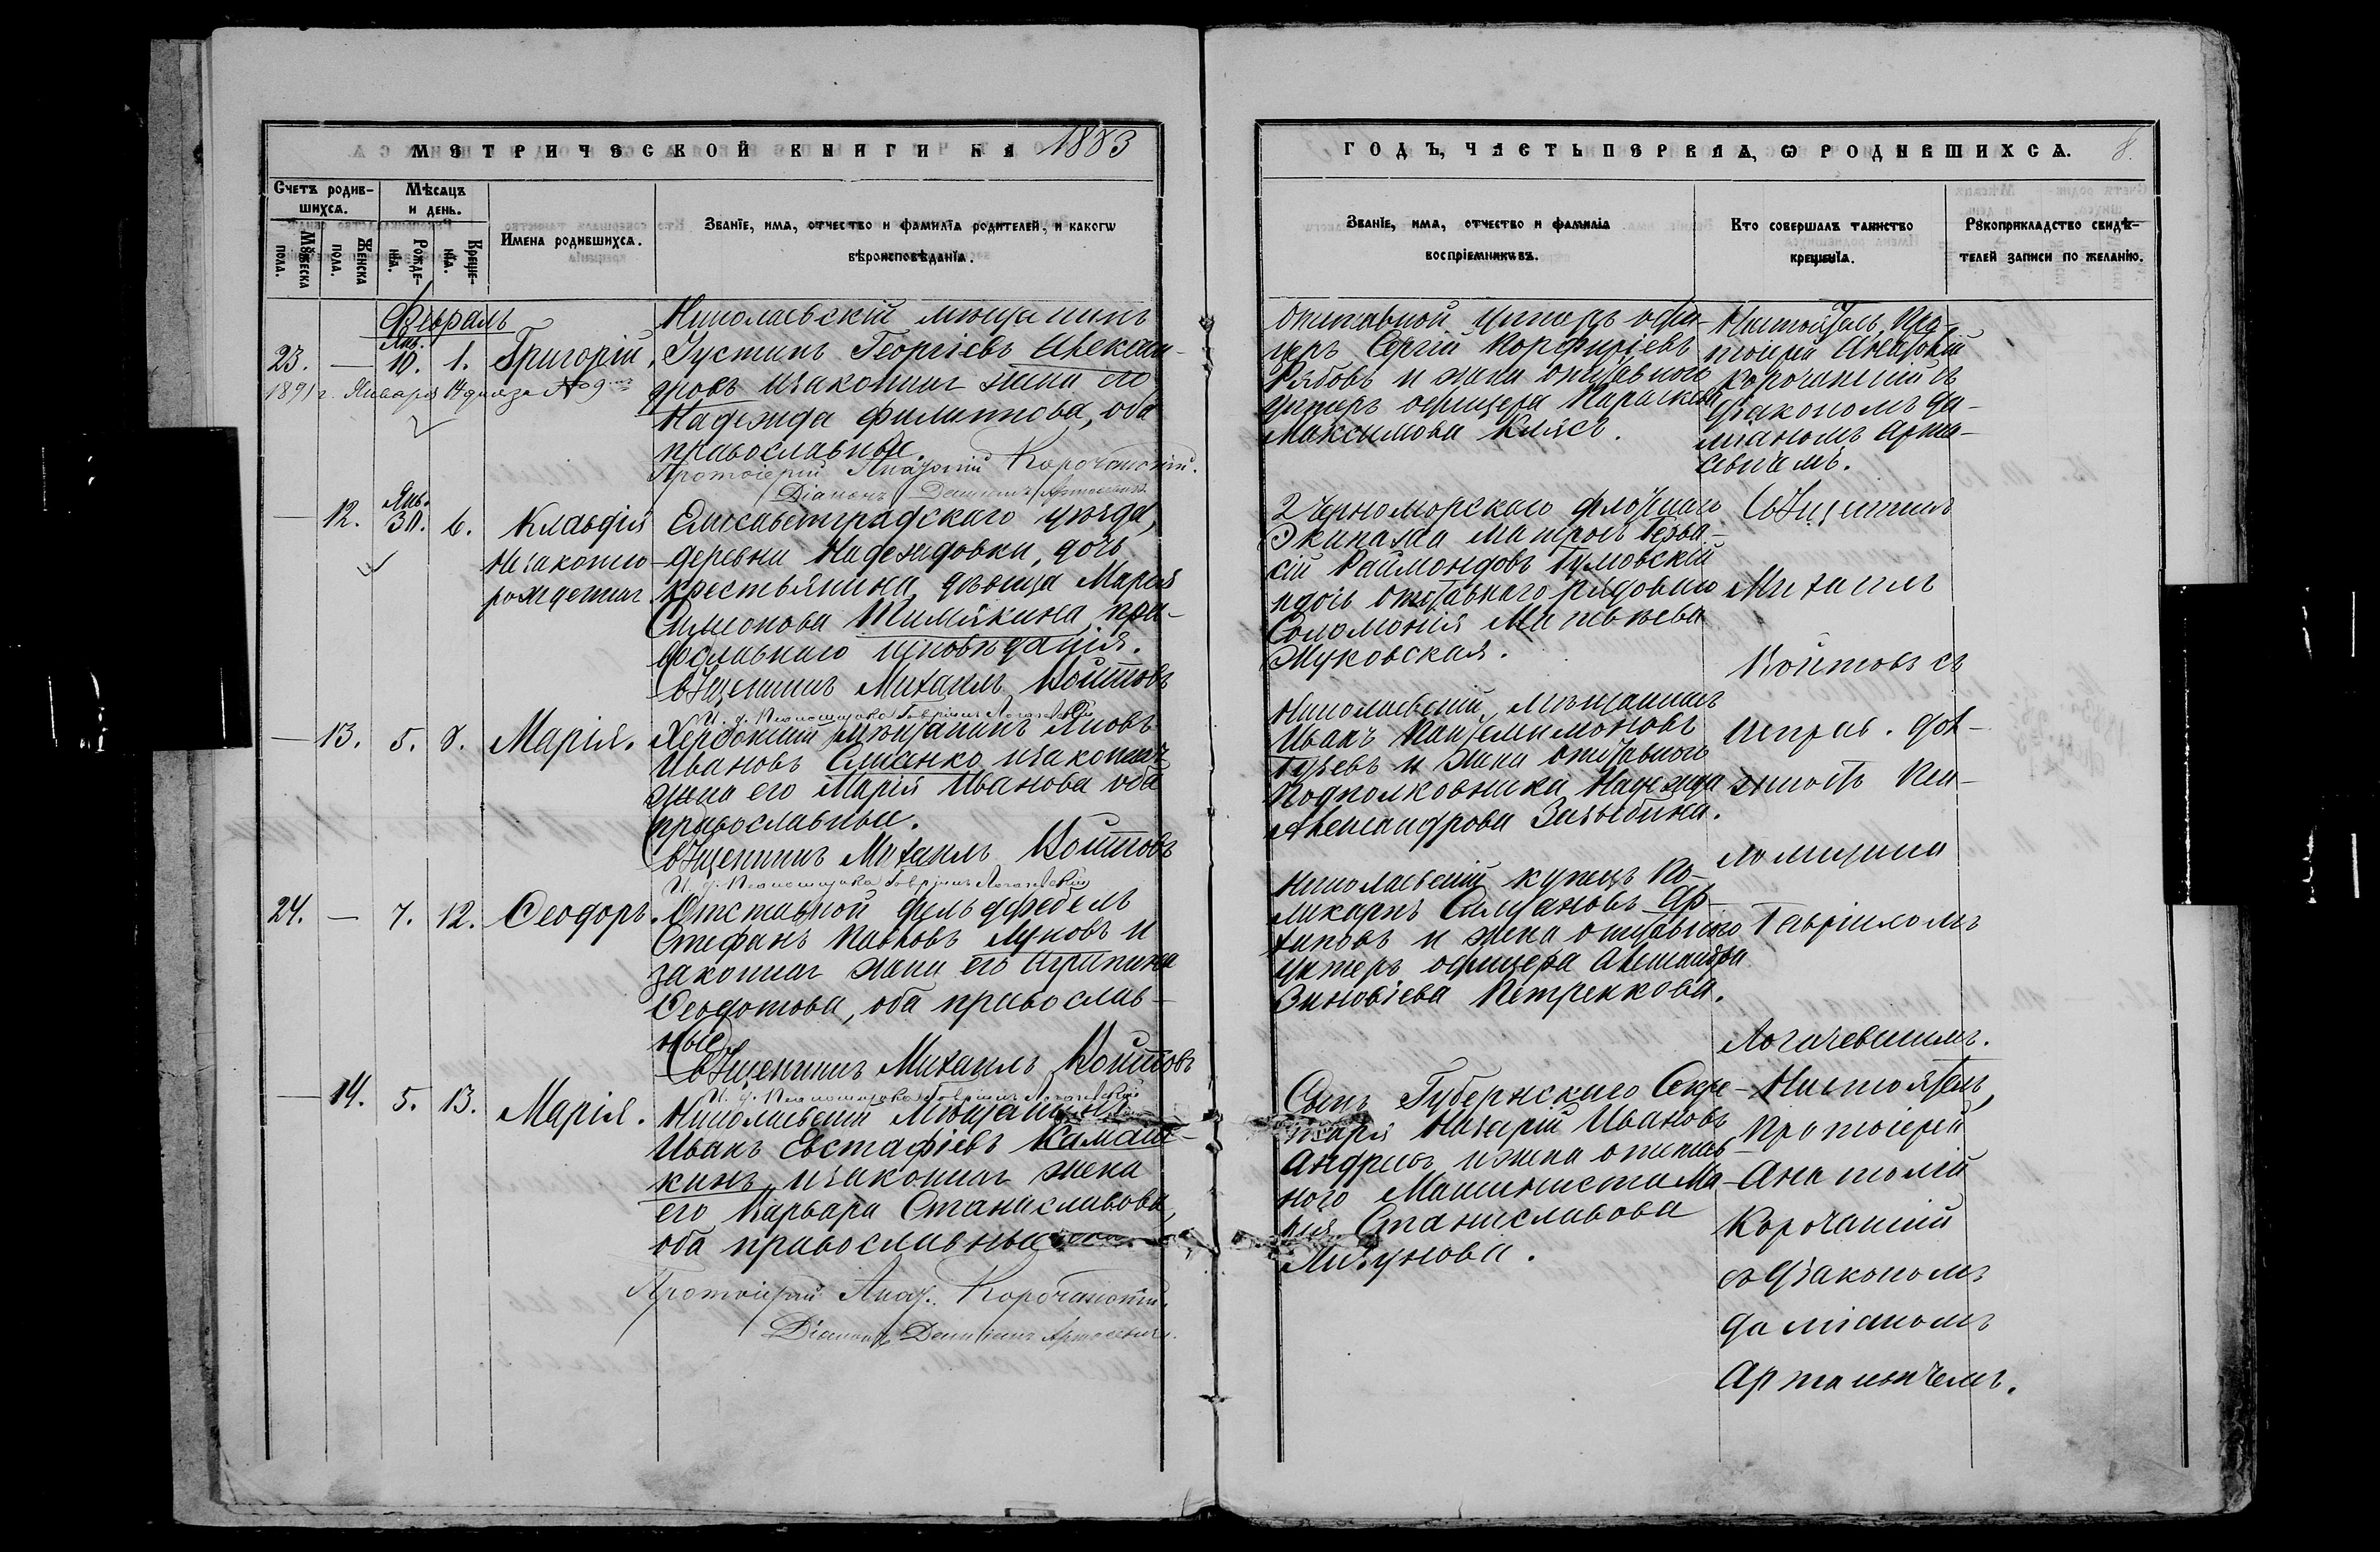 МЕТРИЧЕСКОЙ КНИГИ НА 1883
Счетъ родив-
шихся.
Мѣсяцъ
и день.
Мужеска
пола.
Женска
пола.
Рожде-
нія.
Креще-
нія.
Имена родившихся.
Званіе, имя, отчество и фамилія родителей, и какогѡ
вѣроисповѣданія.
Февраль
23. — Янв. 10. 1. Григорій.
1891 г. Января 14 дня за № 9
Николаевскій мѣщанинъ
Іустинъ Георгіевъ Алексан-
дровъ и законная жена его
Надежда Филиппова, оба
православные.
Протоіерей Анатолій Корочанскій.
Діаконъ Даміанъ Артасевичъ
— 12. Янв. 30. 6. Клавдія
Незаконно-
рожденная.
Елисаветградскаго уѣзда,
деревни Надеждовки, дочь
крестьянина, дѣвица Марія
Симеонова Шимякина, пра-
вославнаго исповѣданія.
Священникъ Михаилъ Войтовъ
И. д. Псаломщика Гавріилъ Логачевскій
— 13. 5. 8. Марія.
Херсонскій мѣщанинъ Яковъ
Ивановъ Сманко и законная
жена его Марія Иванова оба
православные.
Священникъ Михаилъ Войтовъ
И. д. Псаломщика Гавріилъ Логачевскій
24. — 7. 12. Ѳеодоръ.
Отставной фельдфебель
Стефанъ Павловъ Луковъ и
законная жена его Агрипина
Ѳеодотова, оба православ-
ные.
Священникъ Михаилъ Войтовъ
И. д. Псаломщика Гавріилъ Логачевскій
— 14. 5. 13. Марія.
Николаевскій мѣщанинъ
Иванъ Евстафіевъ Камаш-
кинъ и законная жена
его Варвара Станиславова,
оба православные
Протоіерей Анат. Корочанскій.
Діаконъ Даміанъ Артасевичъ.
ГОДЪ, ЧАСТЬ ПЕРВАЯ, Ѡ РОДИВШИХСЯ. 8.
Званіе, имя, отчество и фамилія
воспріемниковъ.
Кто совершалъ таинство
крещенія.
Рукоприкладство свидѣ-
телей записи по желанію.
Отставной унтеръ офи-
церъ Сергій Порфиріевъ
Рябовъ и жена отставнаго
унтеръ офицера Параскева
Максимова Клясъ.
Настоятель, Про-
тоіерей Анатолій
Корочанскій съ
діакономъ Да-
міаномъ Арта-
севичемъ.
2 Черноморскаго флотскаго
Экипажа матросъ Герва-
сій Раймондовъ Гумовскій
и дочь отставнаго рядоваго
Соломонія Матвѣева
Жуковская.
Священникъ
Михаилъ
Войтовъ съ
Николаевскій мѣщанинъ
Иванъ Пантелимоновъ
Гусевъ и жена отставнаго
Подполковника Надежда
Александрова Завыбина.
исправ. дол-
жность Пса-
ломщика
Николаевскій купецъ По-
ликарпъ Степановъ Ар-
хиповъ и жена отставнаго
унтеръ офицера Александра
Зиновіева Петренкова.
Гавріиломъ
Логачевскимъ.
Сынъ Губернскаго Секре-
таря Назарій Ивановъ
Андреевъ и жена отстав-
ного Машиниста Ма-
рія Станиславова
Лизунова.
Настоятель,
Протоіерей
Анатолій
Корочанскій
съ діакономъ
Даміаномъ
Артасевичемъ.